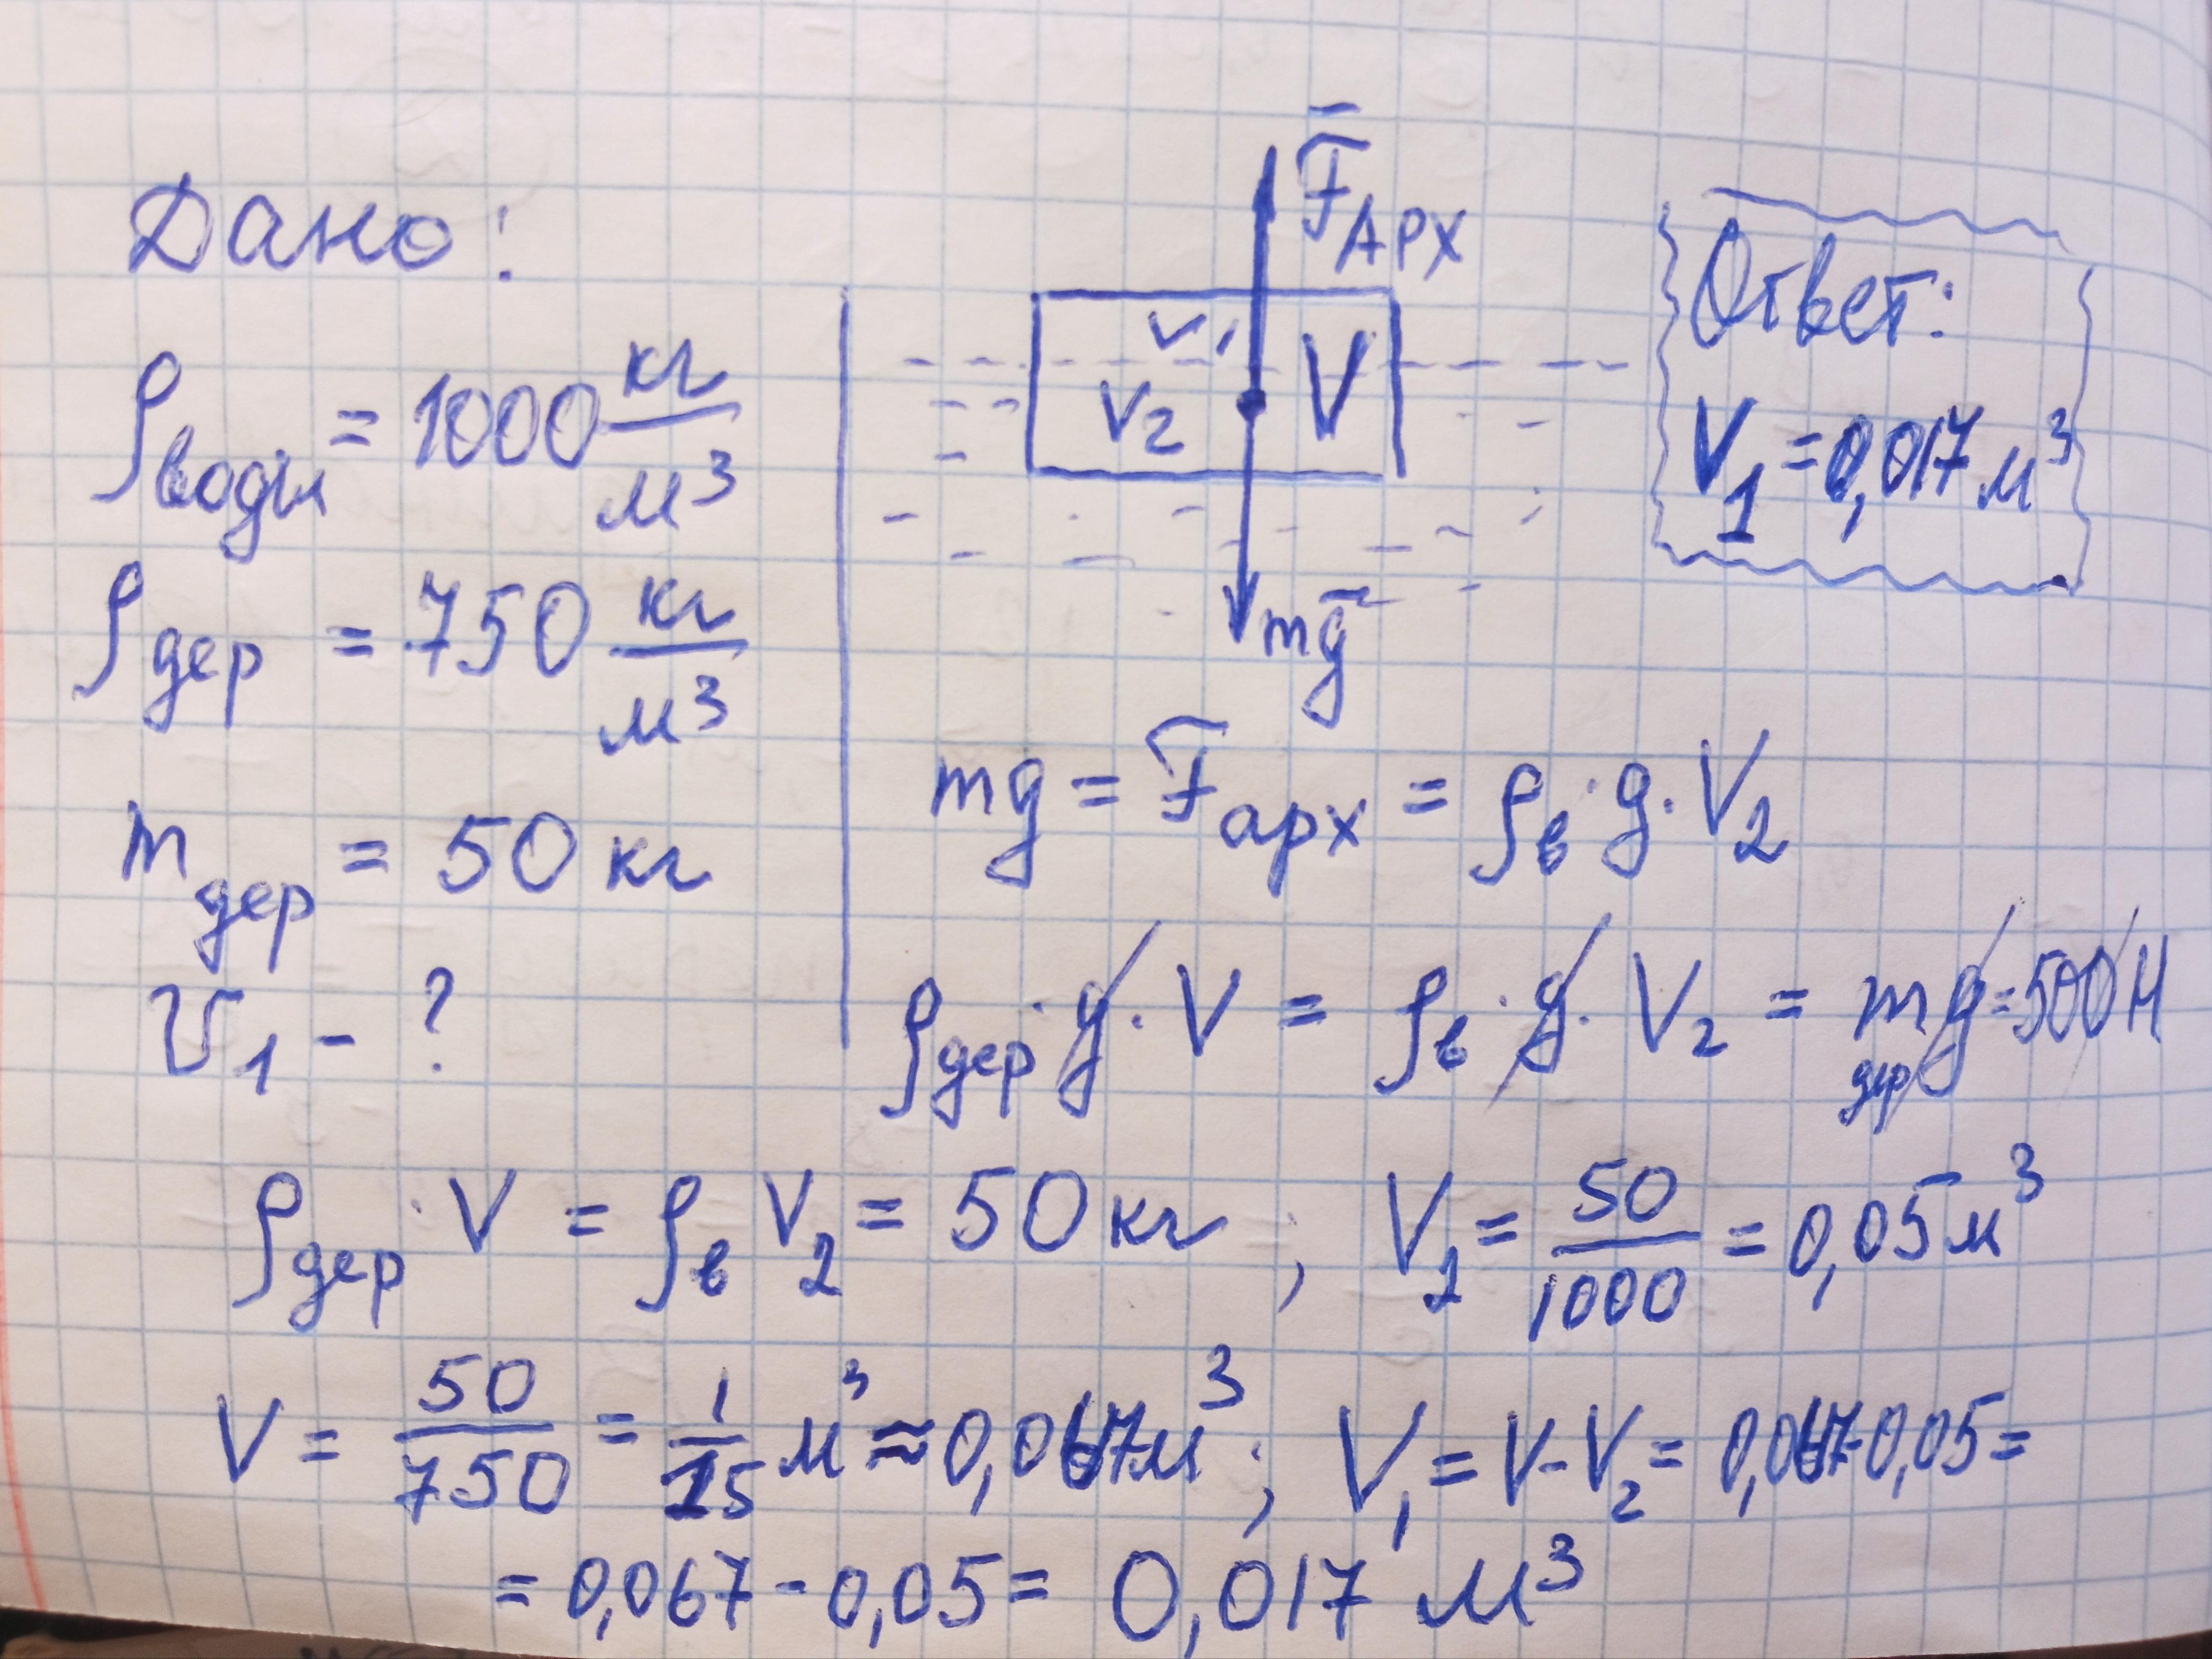 Дано:
ρводы = 1000 кг/м³
ρдер = 750 кг/м³
mдер = 50 кг
V₁ - ?
F̄Арх
V₁
V₂
V
mḡ
Ответ:
V₁ = 0,017 м³
mg = Fарх = ρв · g · V₂
ρдер · g · V = ρв · g · V₂ = mдер g = 500 Н
ρдер · V = ρв V₂ = 50 кг ; V₂ = 50/1000 = 0,05 м³
V = 50/750 = 1/15 м³ ≈ 0,067 м³ ; V₁ = V - V₂ = 0,067 - 0,05 =
= 0,067 - 0,05 = 0,017 м³